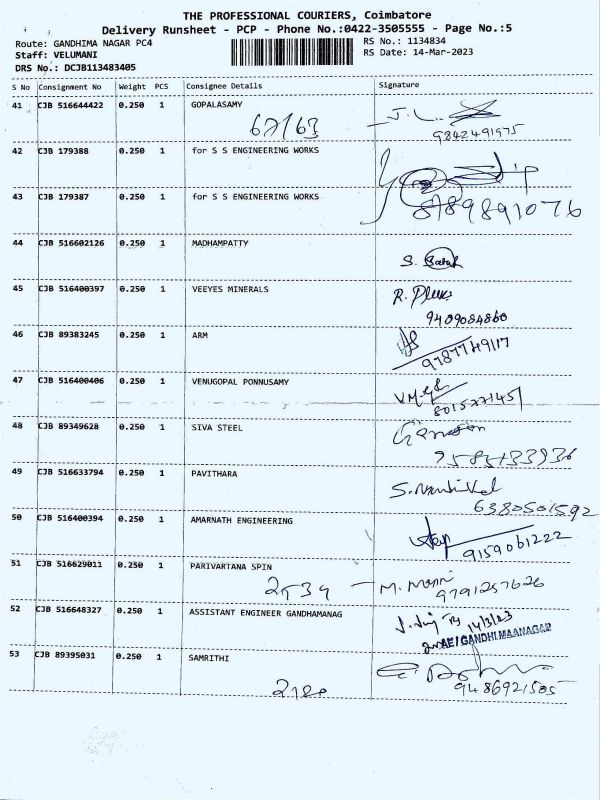 THE PROFESSIONAL COURIERS, Coimbatore
Delivery Runsheet - PCP - Phone No.:0422-3505555 - Page No.:5
Route: GANDHIMA NAGAR PC4 RS No.: 1134834
Staff: VELUMANI RS Date: 14-Mar-2023
DRS No.: DCJB113483405
S No Consignment No Weight PCS Consignee Details Signature
41 CJB 516644422 0.250 1 GOPALASAMY
67/63 9842491975
42 CJB 179388 0.250 1 for S S ENGINEERING WORKS
43 CJB 179387 0.250 1 for S S ENGINEERING WORKS
8789891076
44 CJB 516602126 0.250 1 MADHAMPATTY
45 CJB 516400397 0.250 1 VEEYES MINERALS
9409084860
46 CJB 89383245 0.250 1 ARM
47 CJB 516400406 0.250 1 VENUGOPAL PONNUSAMY
48 CJB 89349628 0.250 1 SIVA STEEL
49 CJB 516633794 0.250 1 PAVITHARA
6380501592
50 CJB 516400394 0.250 1 AMARNATH ENGINEERING
9159061222
51 CJB 516629011 0.250 1 PARIVARTANA SPIN
M. Mani
9791257626
52 CJB 516648327 0.250 1 ASSISTANT ENGINEER GANDHAMANAG
14/3/23
AE/GANDHIMAANAGAR
53 CJB 89395031 0.250 1 SAMRITHI
9486921505